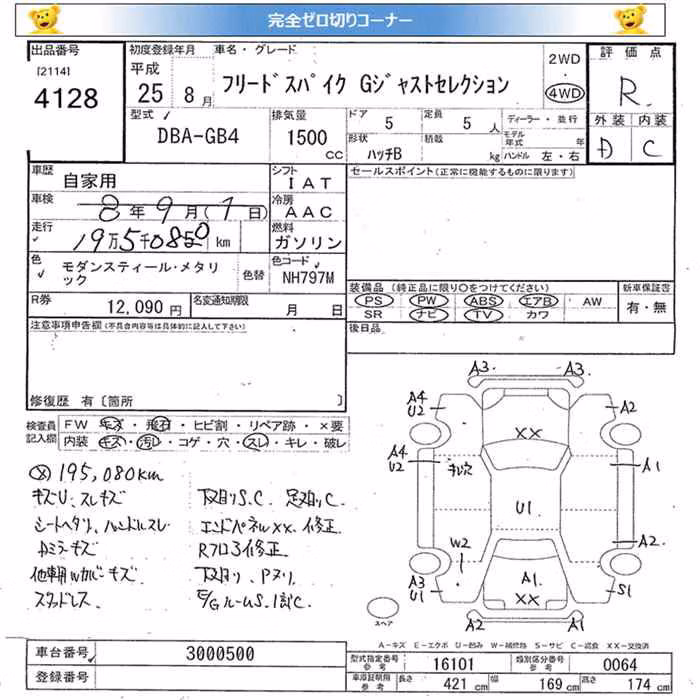 完全ゼロ切りコーナー
出品番号
[2114]
4128
初度登録年月 平成 25 8月
車名・グレード
フリードスパイク Gジャストセレクション
2WD
4WD
評価点
R
外装 内装
D C
型式
DBA-GB4
排気量
1500 CC
ドア 5
定員 5人
ディーラー・並行
形状 ハッチB
積載 kg
モデル年式 年
ハンドル 左・右
車歴
自家用
シフト
IAT
セールスポイント(正常に機能するものに限ります)
車検
8年9月(1日)
冷房
AAC
走行
km
燃料
ガソリン
色
モダンスティール・メタリック
色替
色コード
NH797M
装備品(純正品に限り○をつけてください)
PS PW ABS エアB AW
SR ナビ TV カワ
新車保証書
有・無
R券
12,090円
名変通知期限
月 日
後日品
注意事項申告欄(不具合内容等は具体的に記入して下さい)
修復歴 有〔箇所 〕
検査員記入欄
FW キズ・飛石・ヒビ割・リペア跡・×要
内装 キズ・汚レ・コゲ・穴・スレ・キレ・破レ
195,080km
キズU、スレキズ
下廻りS.C 足廻りC
シートヘタリ、ハンドルスレ
エンドパネルXX、修正
Dミラーキズ
Rフロア修正
下廻り、Pヌリ
スタッドレス
A3 A3
A4 U2 A2
XX
A4 U2 A1
U1
W2 A2
A3 U1 A1 XX S1
A2 A1
スペア
A-キズ E-エクボ U-凹み W-補修跡 S-サビ C-腐食 XX-交換済
車台番号
3000500
登録番号
型式指定番号参考
16101
類別区分番号参考
0064
車添証限り参考
長さ 421cm 幅 169cm 高さ 174cm